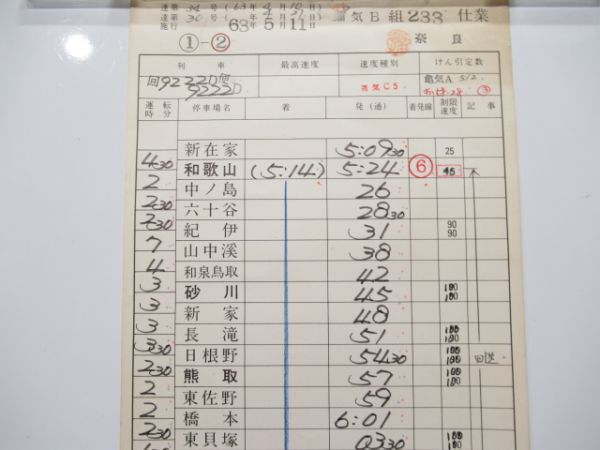 達第34号(63年4月10日)
達第30号(
施行 63年5月11日 気B組 233 仕業
①-② 奈良
列車 最高速度 速度種別 けん引定数
回9222D
9222D 亀気A 512
運転時分 停車場名 着 発(通) 着発線 制限速度 記事
新在家 5:09 30 25
4 30 和歌山 (5:14) 5:24 ⑥ 45
2 中ノ島 26
2 30 六十谷 28 30
2 30 紀伊 31 90 90
7 山中渓 38
4 和泉鳥取 42
3 砂川 45 100 100
3 新家 48
3 長滝 51 100 100
3 30 日根野 54 30 100 100 回送
2 30 熊取 57 100 100
2 東佐野 59
2 橋本 6:01
2 30 東貝塚 03 30 100 100